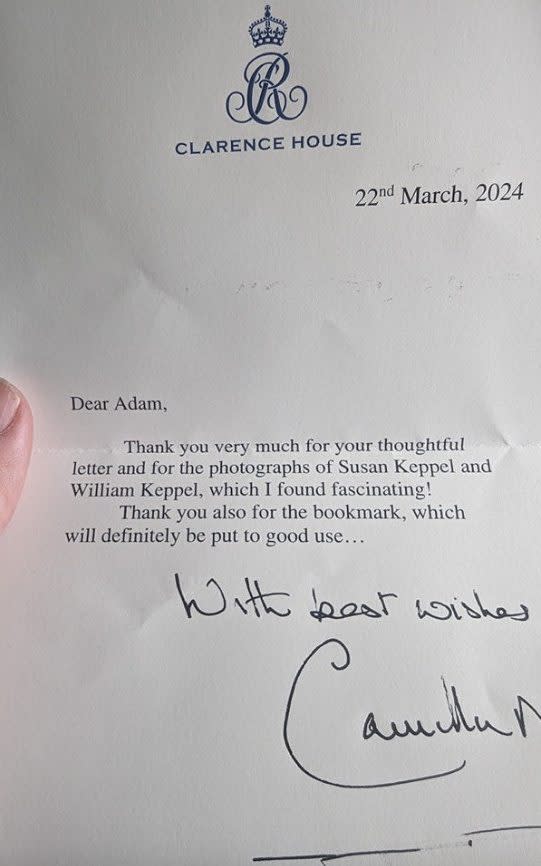 CLARENCE HOUSE
22nd March, 2024
Dear Adam,
Thank you very much for your thoughtful
letter and for the photographs of Susan Keppel and
William Keppel, which I found fascinating!
Thank you also for the bookmark, which
will definitely be put to good use…
With best wishes
Camilla R